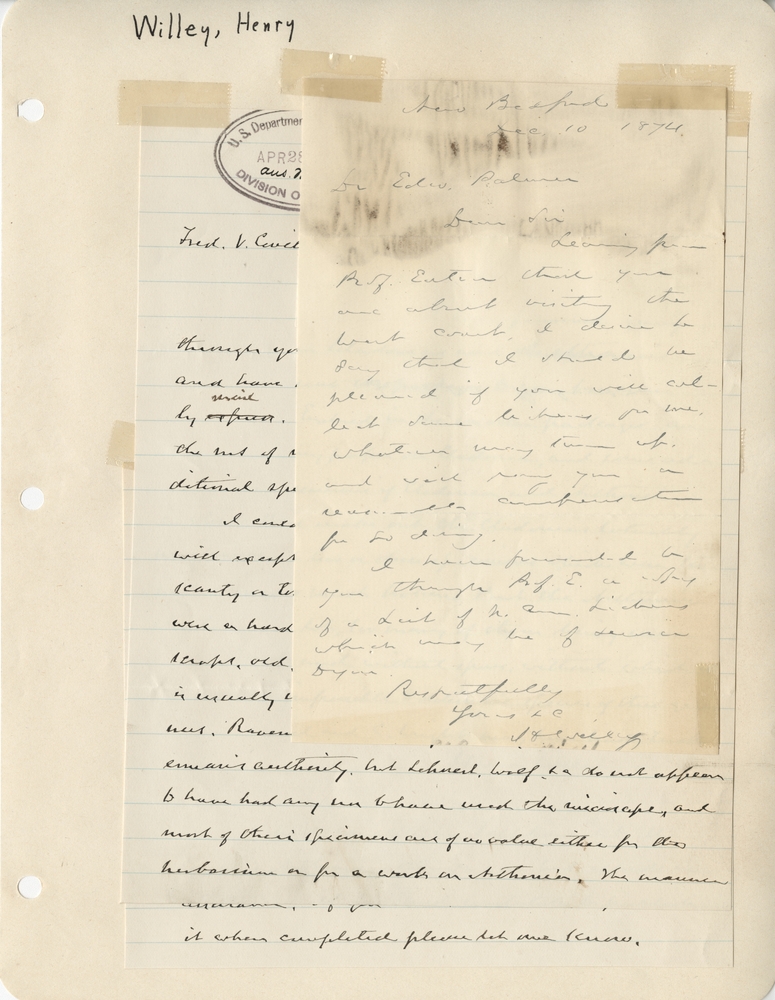 Willey, Henry
U.S. Departme
APR 28
ans.
DIVISION O
New Bedford
Dec. 10 1874.
Dr Edw. Palmer
Dear Sir
Learning from
Prof. Eaton that you
are about visiting the
west coast, I desire to
say that I should be
pleased if you will col-
lect some lichens for me,
whatever may turn up,
and will pay you a
reasonable compensation
for so doing.
I have forwarded to
you through Prof. E. a copy
of a List of N. Am. Lichens
which may be of service
to you.
Respectfully
Yours &c
H Willey
Fred. V. Covil
through yo
and have
by
the rest of
ditional spe
I could
will except
scanty or to
were a hard
scraps, old,
is usually
nus. Raven
eminent authority, but Schwed, Wolf, &c do not appear
to have had any nor to have used the microscope, and
most of their specimens are of no value either for the
herbarium or for a work on Arthonias. The manner
if you
it when completed please let me know.